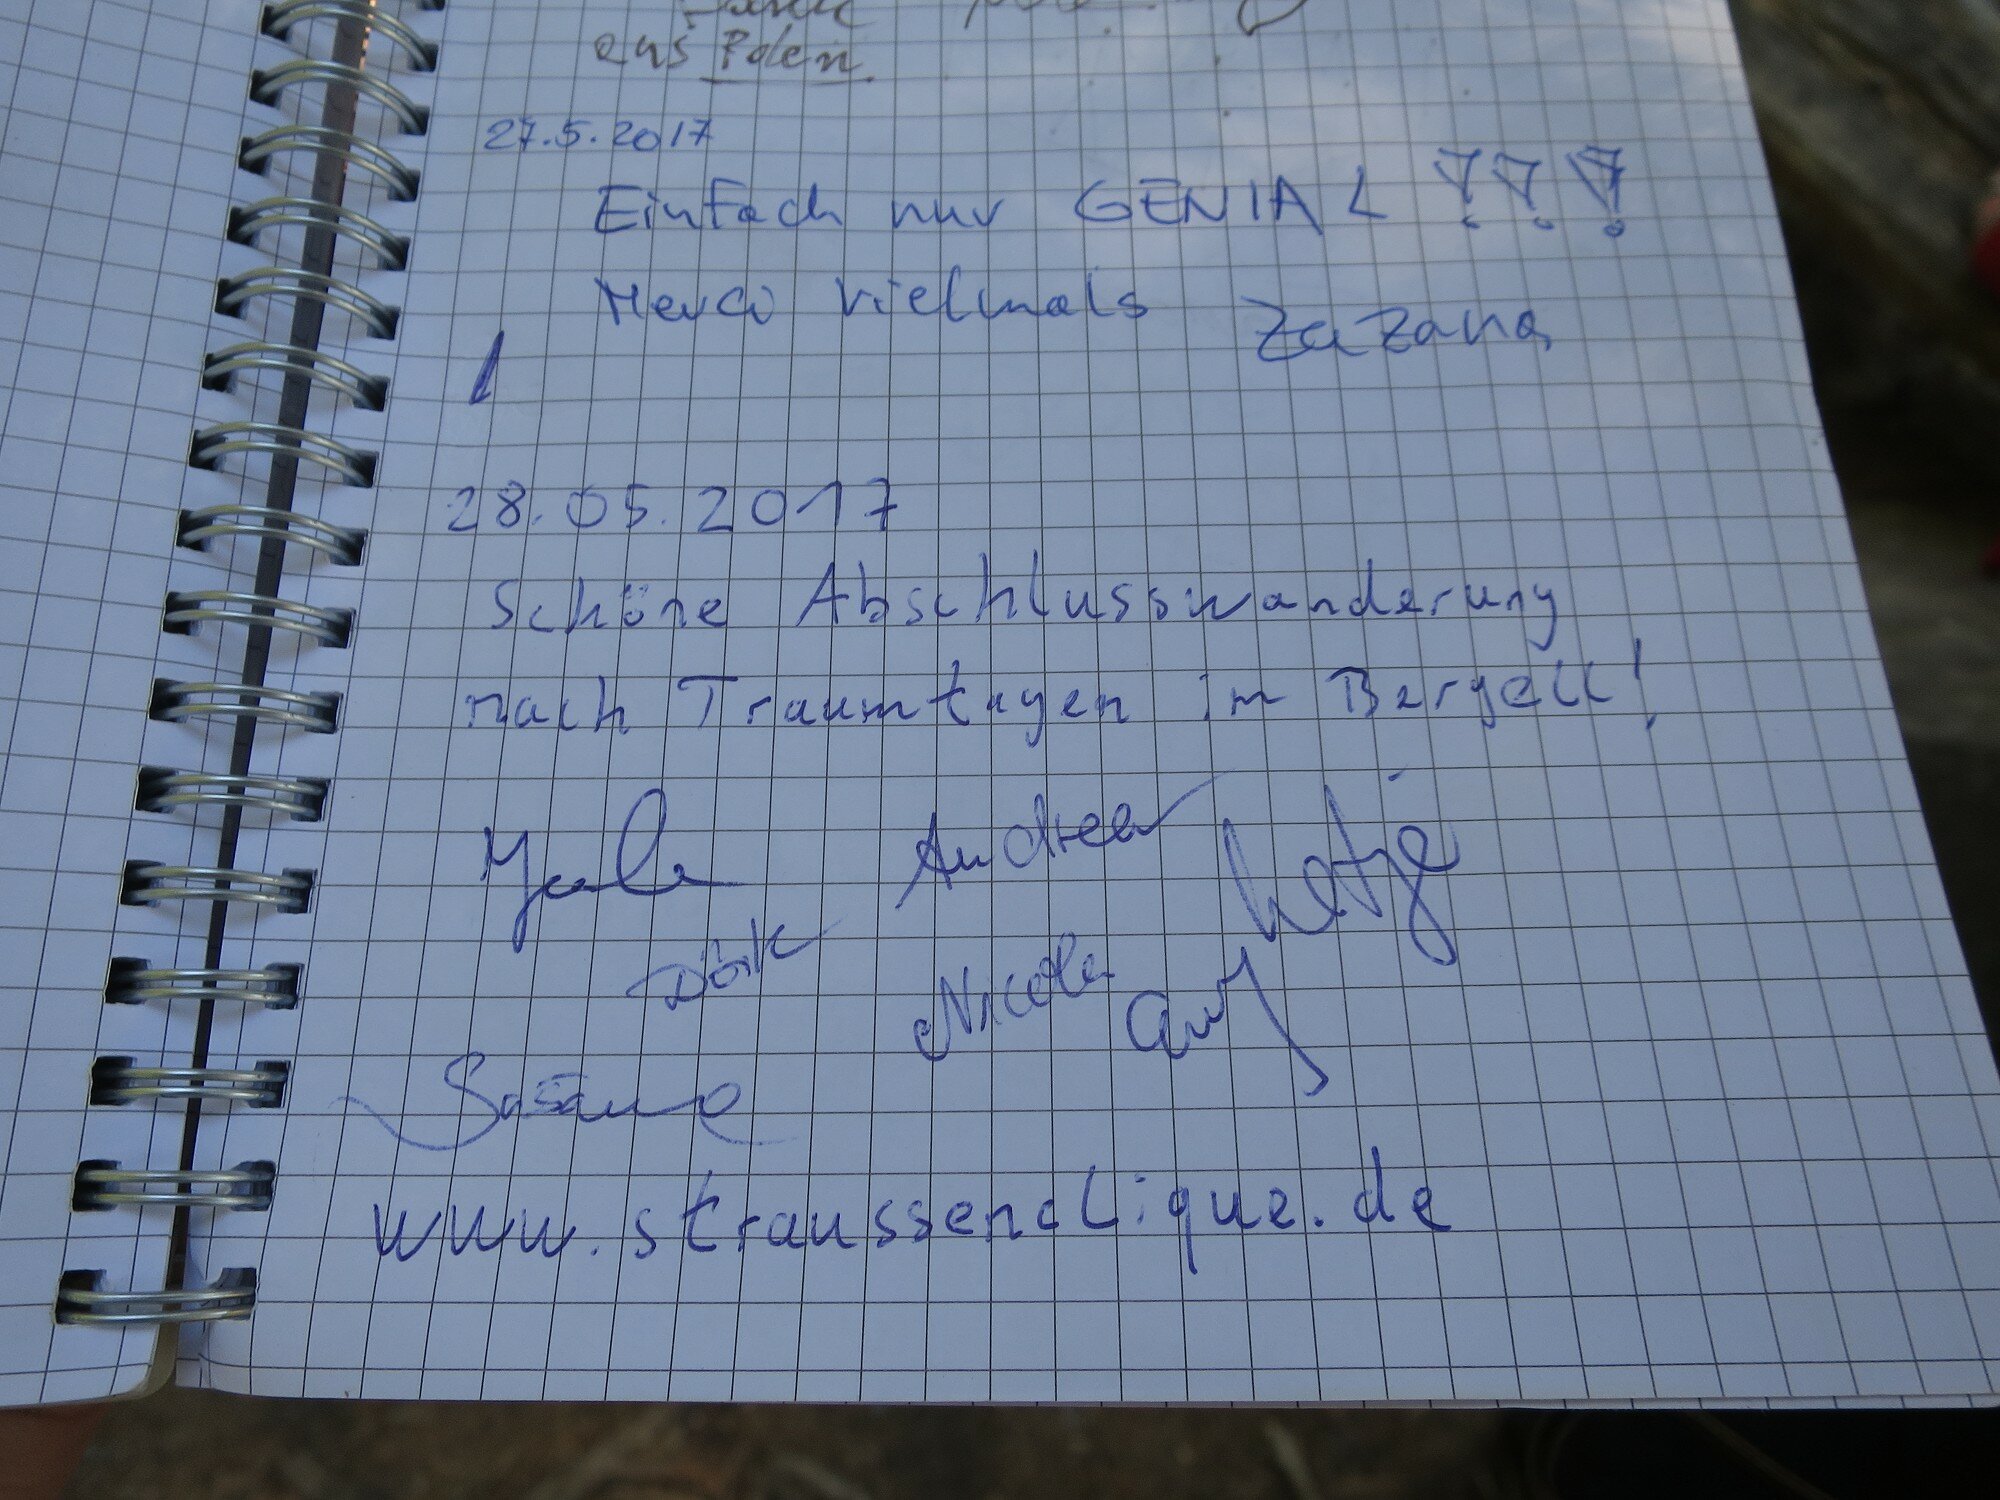 aus Polen.
27.5.2017
Einfach nur GENIAL !!!
Merci vielmals Zazana
28.05.2017
Schöne Abschlusswanderung
nach Traumtagen im Bergell!
Andrea
Dörk Nicola
www.straussenclique.de